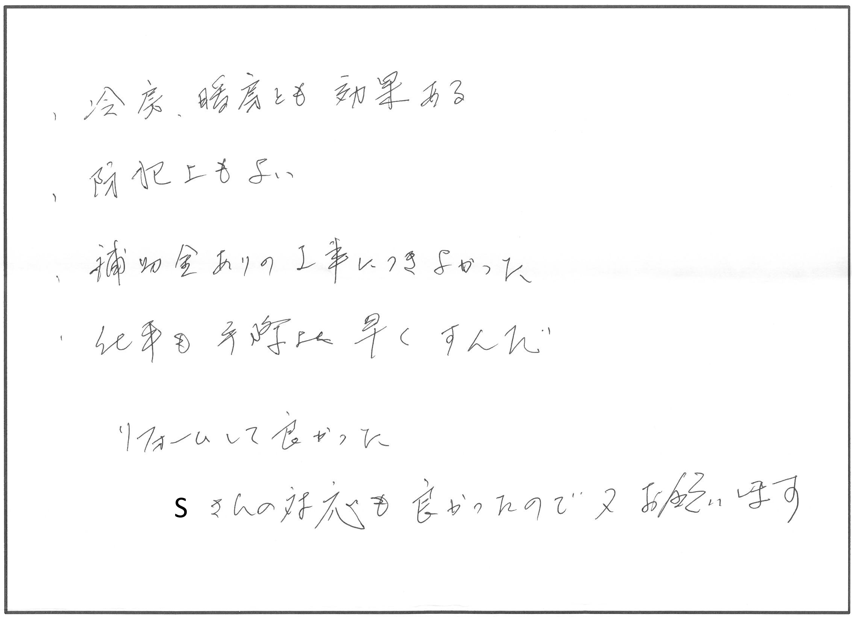 、冷房、暖房とも効果ある
、防犯上もよい
、補助金ありの工事につきよかった
、仕事も手際よく早くすんだ
リフォームして良かった
Sさんの対応も良かったので又お願いします